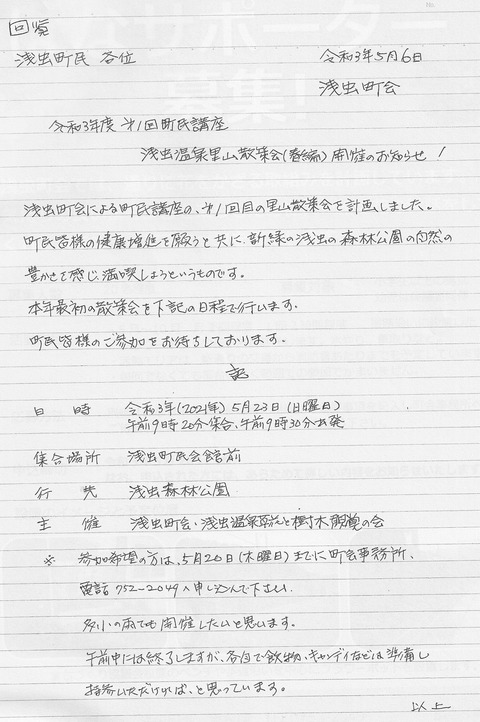 回覧
浅虫町民 各位 令和3年5月6日
浅虫町会
令和3年度 オ1回町民講座
浅虫温泉里山散策会(春編)開催のお知らせ!
浅虫町会による町民講座の、オ1回目の里山散策会を計画しました。
町民皆様の健康増進を願うと共に、新緑の浅虫の森林公園の自然の
豊かさを感じ、満喫しようというものです。
本年最初の散策会を下記の日程で行います。
町民皆様のご参加をお待ちしております。
記
日 時 令和3年(2021年) 5月23日(日曜日)
午前9時20分集合、午前9時30分出発
集合場所 浅虫町民会館前
行 先 浅虫森林公園
主 催 浅虫町会・浅虫温泉 と樹木 の会
※ 参加希望の方は、5月20日(木曜日)までに町会事務所、
電話752-2049へ申し込んで下さい。
多少の雨でも開催したいと思います。
午前中には終了しますが、各自で飲物、キャンディなどは準備し
持参いただければ、と思っています。
以上